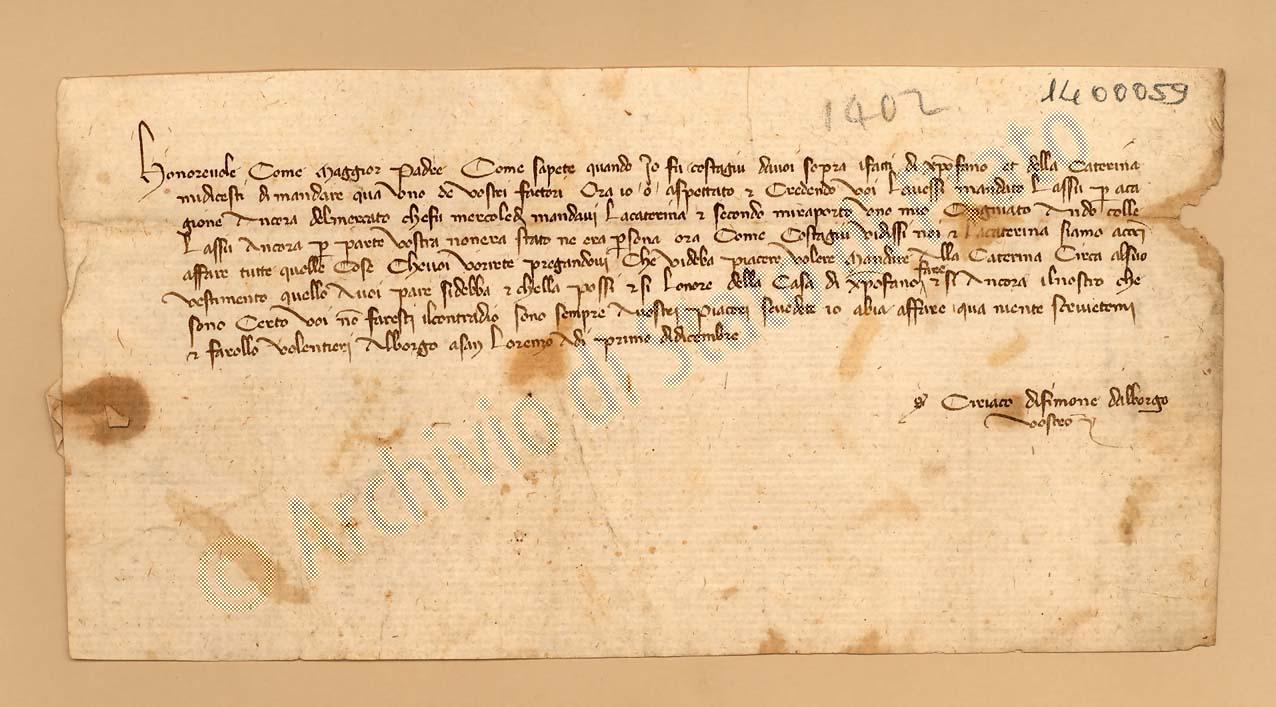 1402
1400059
Honorevole Come Maggior Padre Come sapete quando Io fu costagiu davoi sopra ifatti di xp̄ofano et della Caterina
midicesti di mandare qua uno de vostri fattori Ora io ò aspettato & Credendo Voi Lavessi mandato Lassu p̱ aca
gione Ancora delmercato chefu mercoledj mandavi Lacaterina & secondo miraporto uno mio Andò colle
Lassu Ancora p̱ parte vostra nonera stato ne era p̱sona ora Come Costagiu vidissi noi & Lacaterina siamo acci
affare tutte quelle Cose Chevoi vorrete pregandovi Che videba piacere volere mandare Alla Caterina Circa alsuo
fare
vestimento quello Avoi pare sidebba & chella possi & si Lonore della Casa di xp̄ofano & si Ancora ilnostro che
sono Certo Voi nō faresti ilcontradio sono sempre Avostri piaceri sevedete io abia affare qua niente scrivetemi
& farollo volentieri Alborgo asan Lorenzo Adi primo didicembre
Ciriaco disimone dalborgo
vostro
© Archivio di Stato di Prato